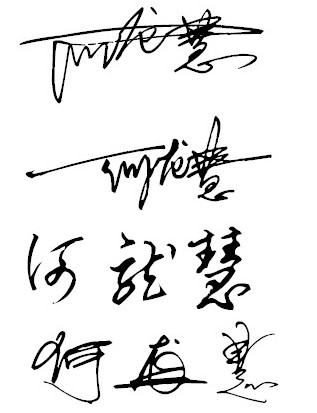 何龙慧
何龙慧
何龍慧
何龙慧